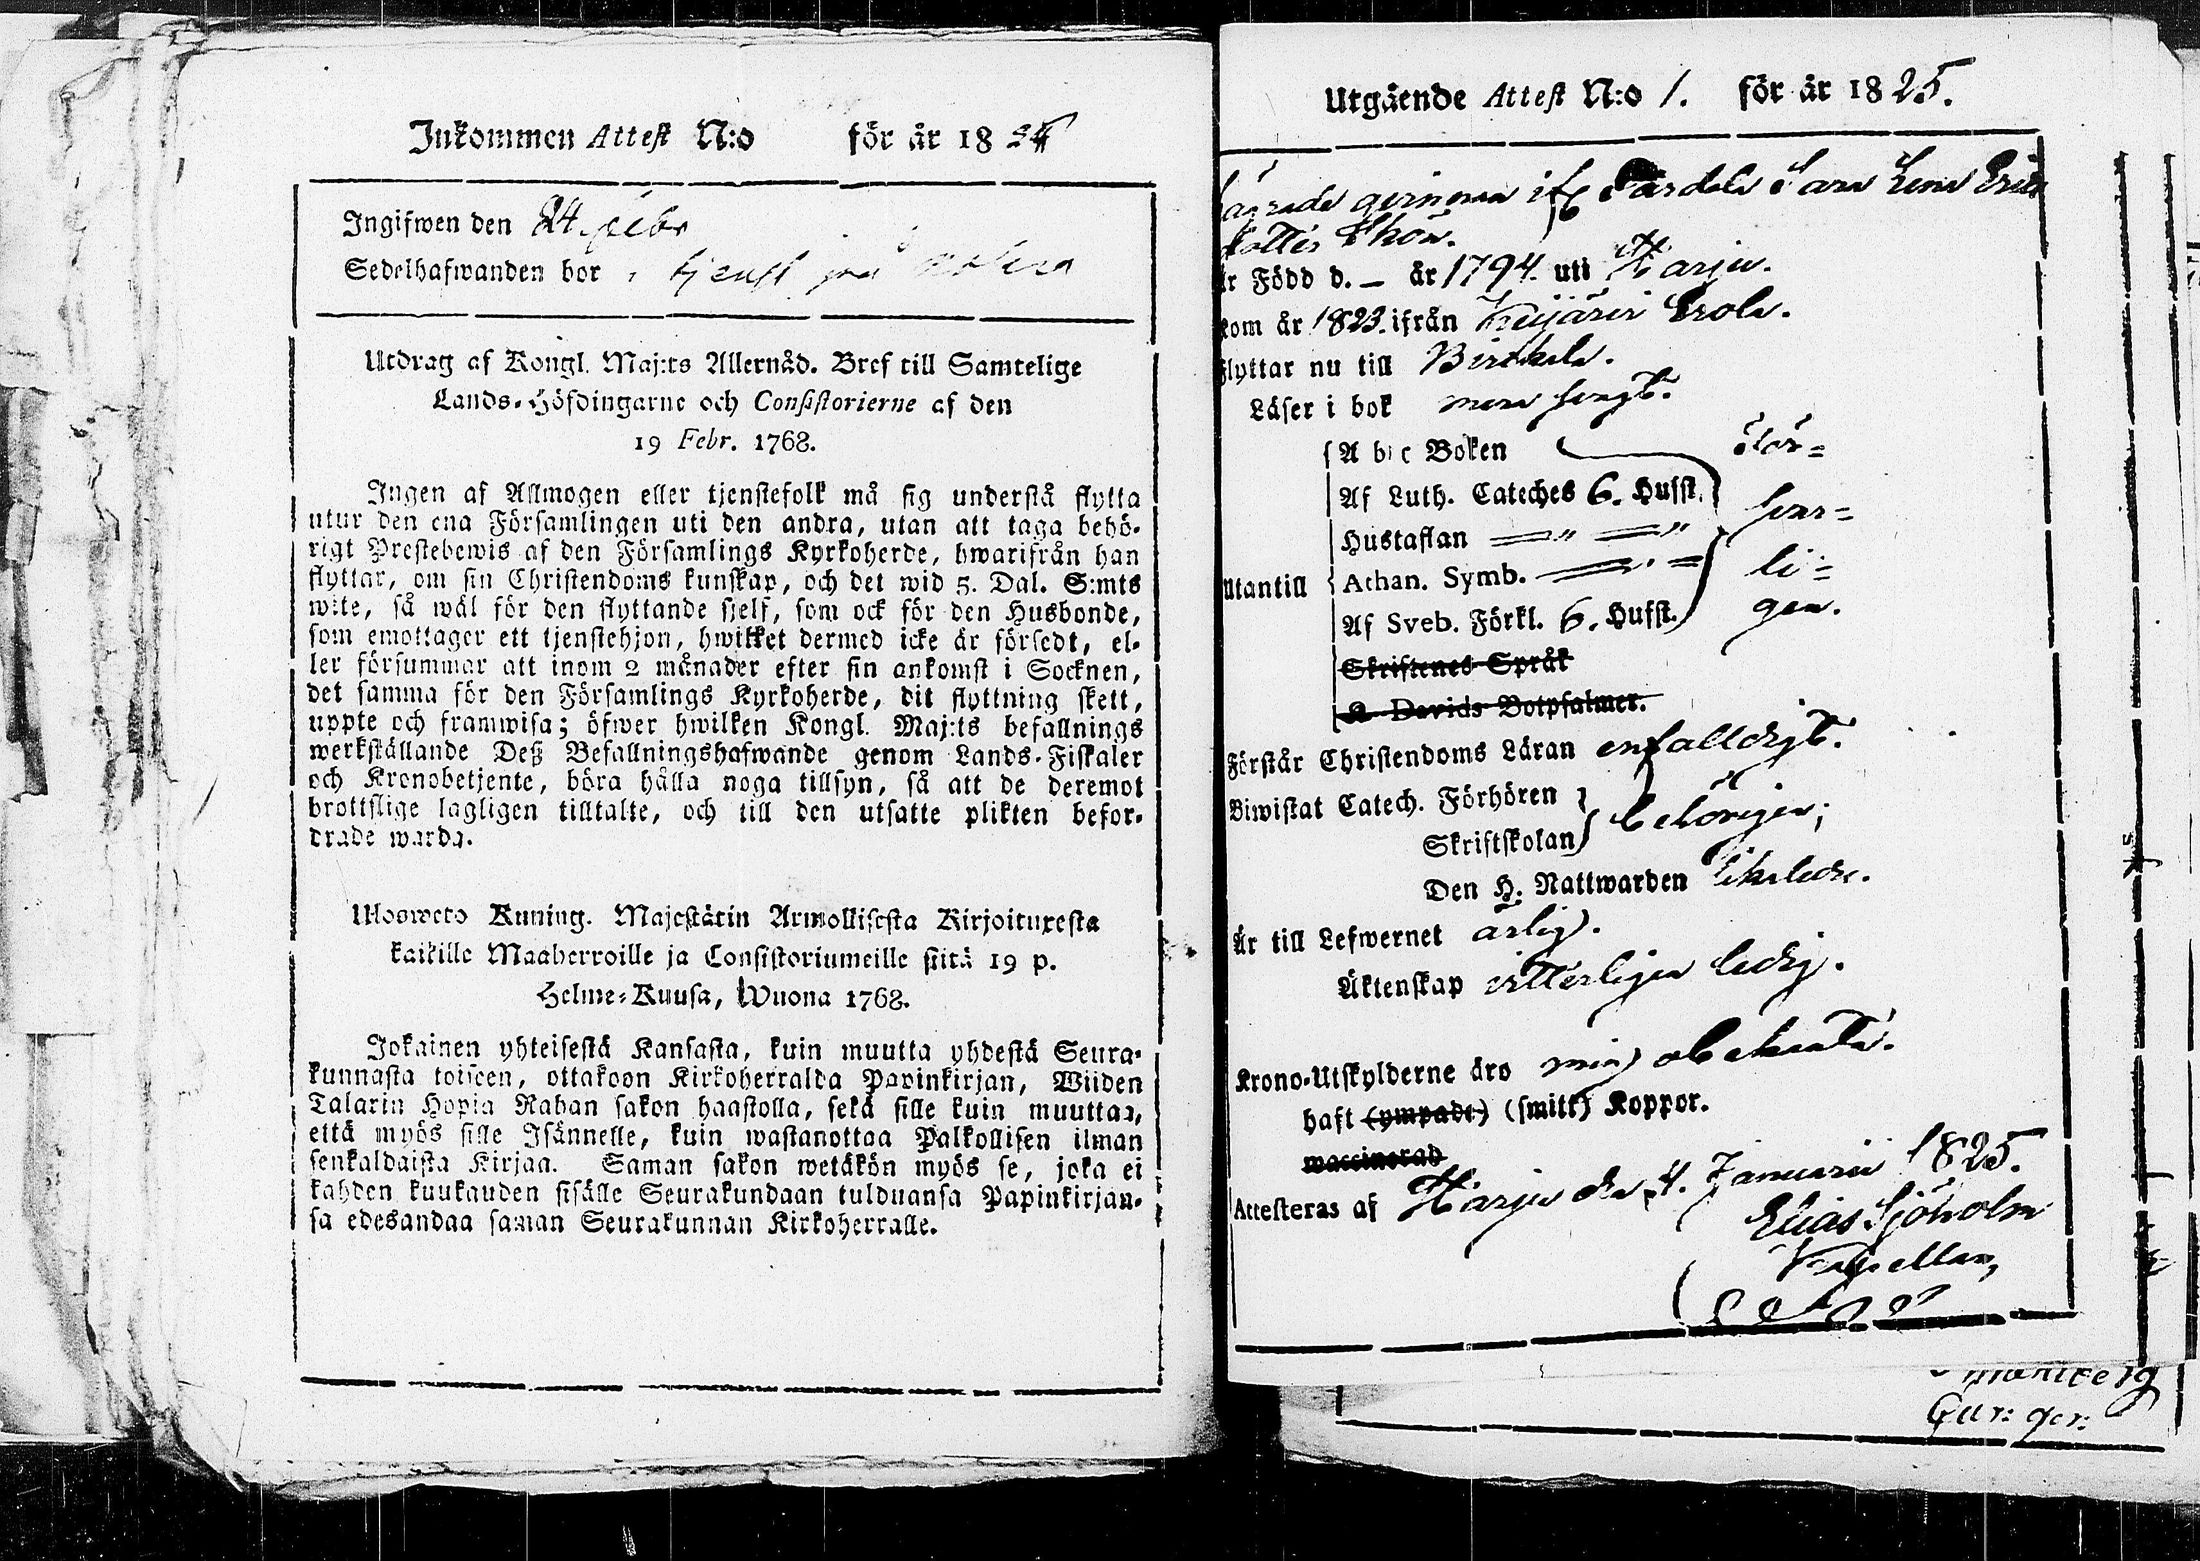 Inkommen Attest N:o för år 1824
Ingifwen den 24. Febr
Sedelhafwanden bor i tjenst på
Utdrag af Kongl. Maj:ts Allernåd. Bref till Samtelige
Lands-Höfdingarne och Consistorierne af den
19 Febr. 1768.
Ingen af Allmogen eller tjenstefolk må sig understå flytta
utur den ena Församlingen uti den andra, utan att taga behö-
rigt Prestebewis af den Församlings Kyrkoherde, hwarifrån han
flyttar, om sin Christendoms kunskap, och det wid 5. Dal. S:mts
wite, så wäl för den flyttande sjelf, som ock för den Husbonde,
som emottager ett tjenstehjon, hwilket dermed icke är försedt, el-
ler försummar att inom 2 månader efter sin ankomst i Socknen,
det samma för den Församlings Kyrkoherde, dit flyttning skett,
uppte och framwisa; öfwer hwilken Kongl. Maj:ts befallnings
werkställande Deß Befallningshafwande genom Lands-Fiskaler
och Kronobetjente, böra hålla noga tillsyn, så att de deremot
brottslige lagligen tilltalte, och till den utsatte plikten befor-
drade warda.
Ulosweto Kuning. Majestätin Armollisesta Kirjoituxesta
kaikille Maaherroille ja Consistoriumeille siitä 19 p.
Helme-Kuusa, Wuona 1768.
Jokainen yhteisestä Kansasta, kuin muutta yhdestä Seura-
kunnasta toiseen, ottakoon Kirkoherralda Papinkirjan, Wiiden
Talarin Hopia Rahan sakon haastolla, sekä sille kuin muuttaa,
että myös sille Isännelle, kuin wastanottaa Palkollisen ilman
senkaldaista Kirjaa. Saman sakon wetäkön myös se, joka ei
kahden kuukauden sisälle Seurakundaan tulduansa Papinkirjan-
sa edesandaa saman Seurakunnan Kirkoherralle.
Utgående Attest N:o 1. för år 1825.
qvinnan Sara Lena Erics
är Född d. – år 1794. uti Harju.
kom år 1823. ifrån Erola.
flyttar nu till Birkala.
Läser i bok svagt.
A b c Boken
Af Luth. Cateches 6. Husst. svar=
Hustaflan
Utantill Athan. Symb. li=
Af Sveb. Förkl. 6. Husst. gen.
Skriftenes Språk
K. Davids Botpsalmer.
Förstår Christendoms Läran enfalldigt.
Biwistat Catech. Förhören
Skriftskolan behörigen;
Den H. Nattwarden likaledes.
Är till Lefwernet ärlig.
Äktenskap witterligen ledig.
Krono-Utskylderne äro mig obekanta.
haft (ympade) (smitt) Koppor.
waccinerad
Attesteras af Harju den 4. Januarii 1825.
Elias Sjöholm
Kapellan,